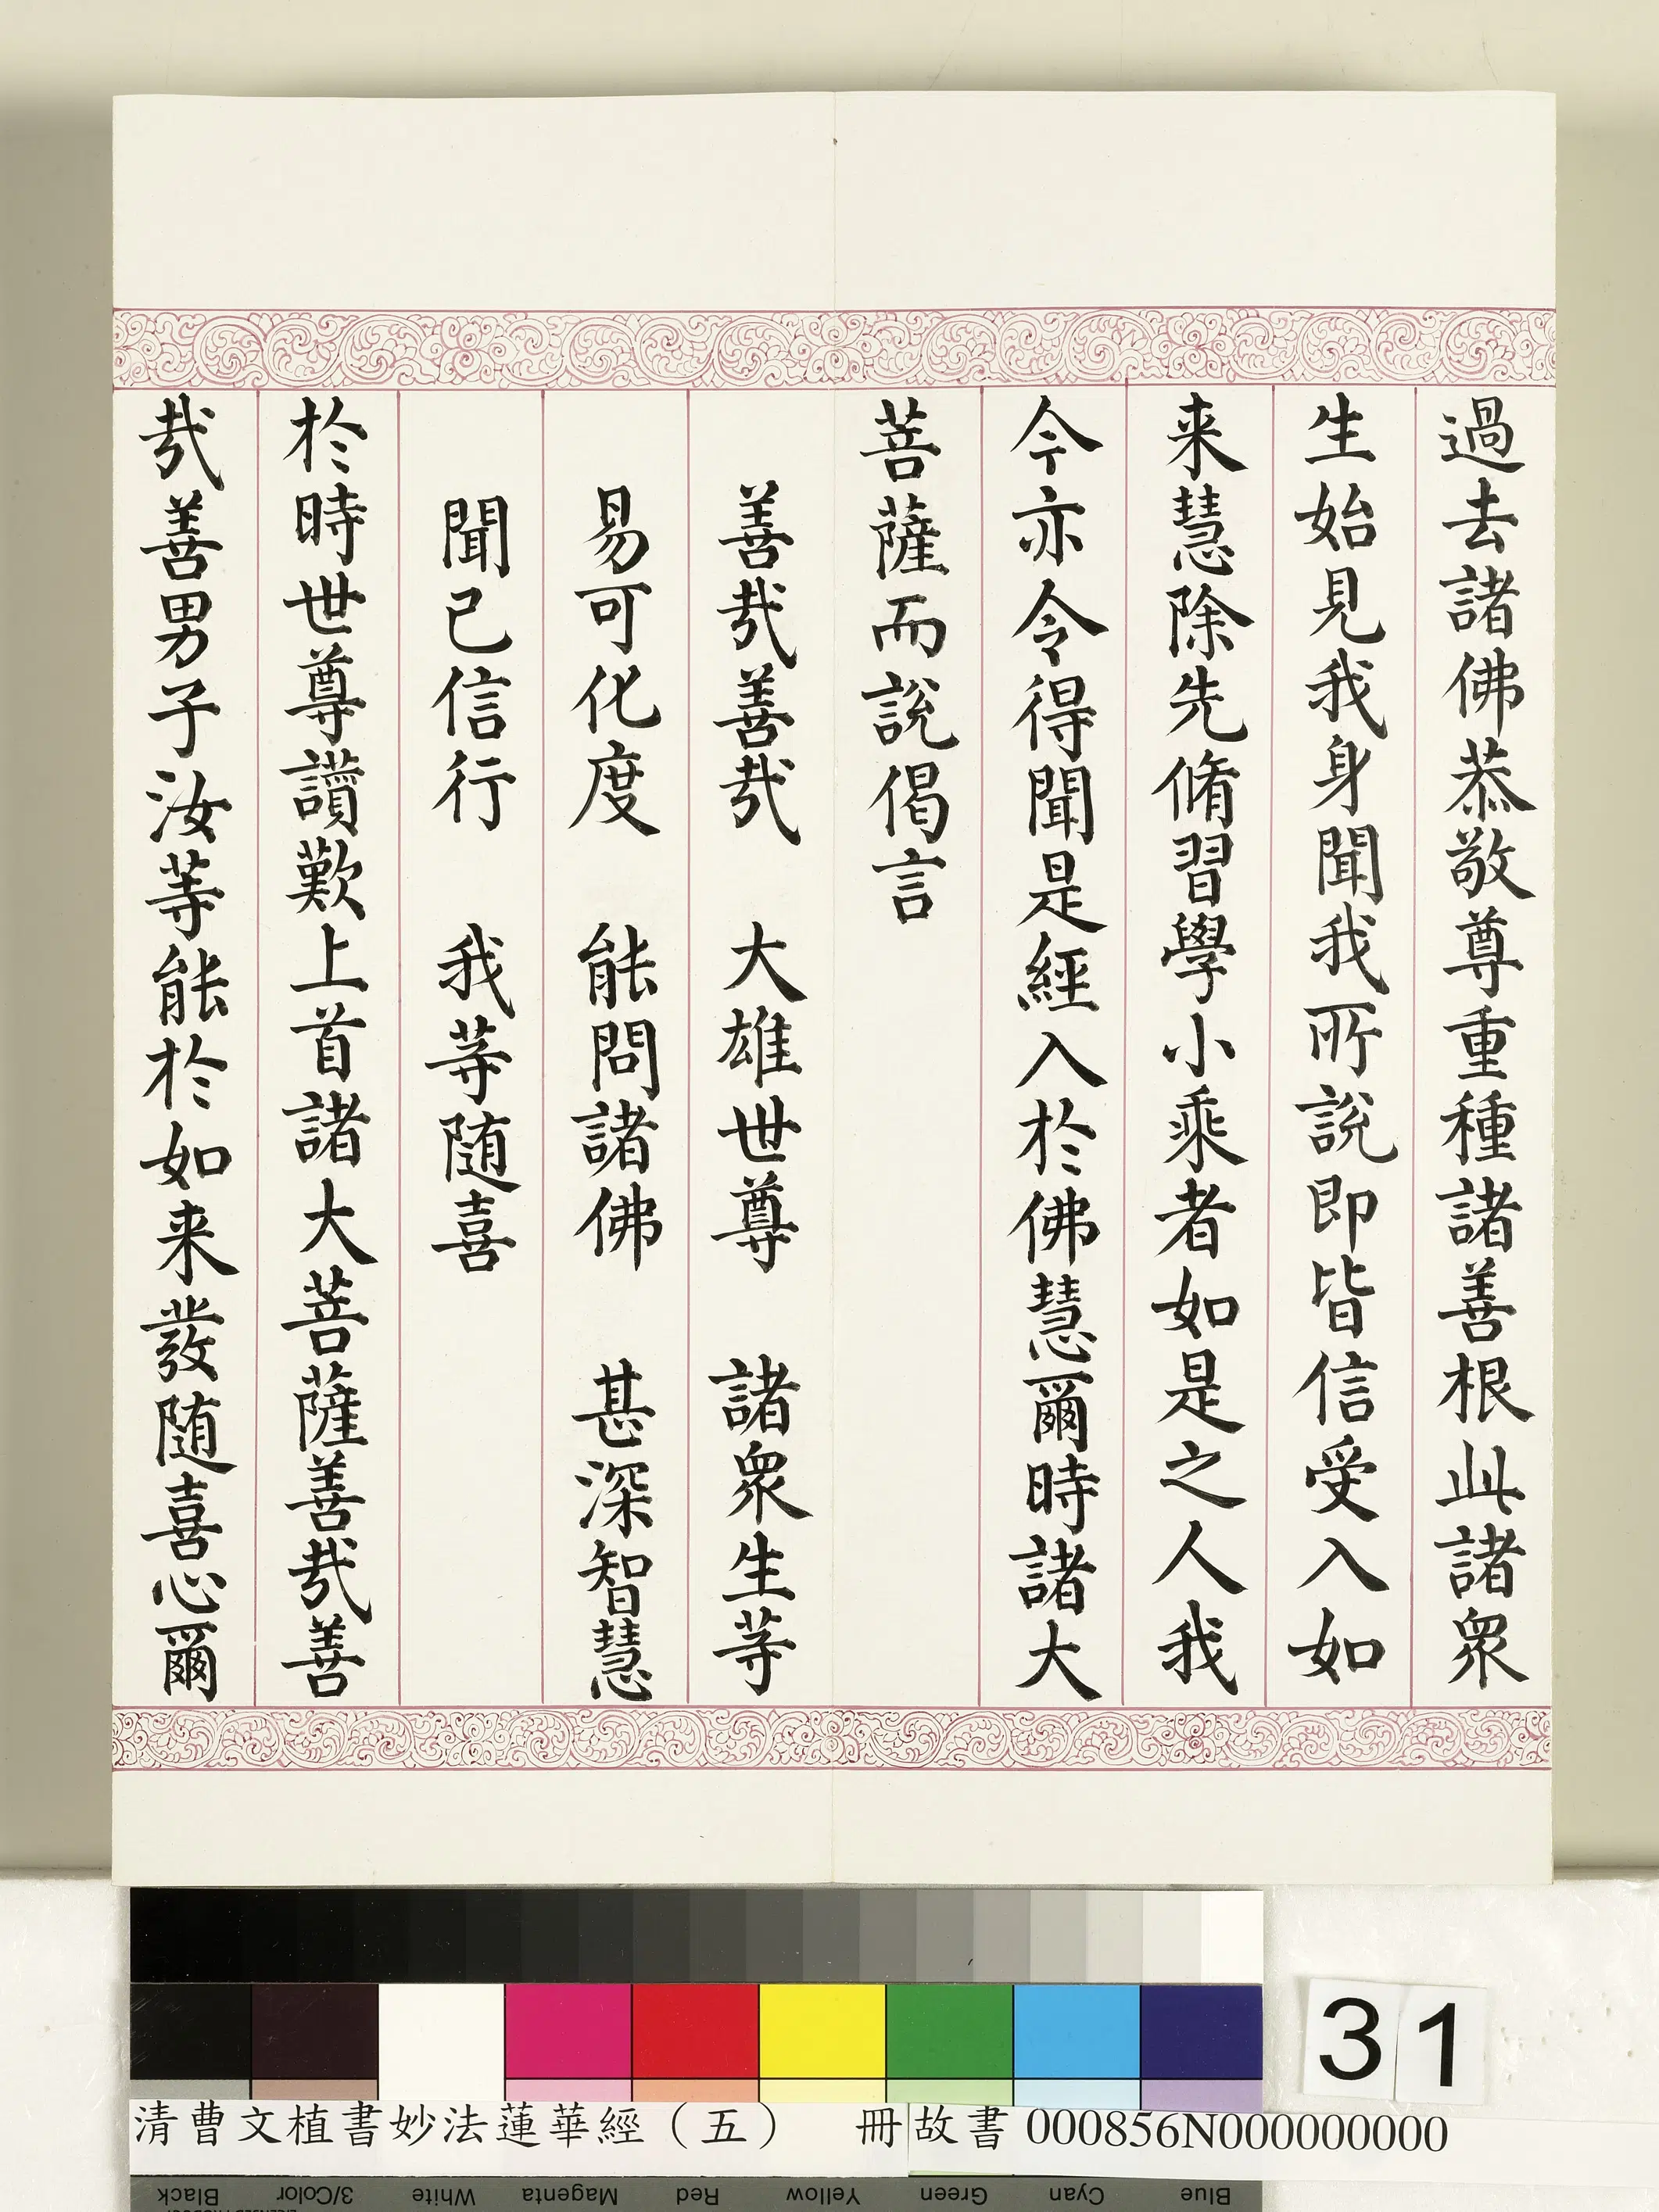 過去諸佛恭敬尊重種諸善根此諸眾
生始見我身聞我所說即皆信受入如
来慧除先脩習學小乘者如是之人我
今亦令得聞是經入於佛慧爾時諸大
菩薩而說偈言
善哉善哉　大雄世尊　諸眾生等
易可化度　能問諸佛　甚深智慧
聞已信行　我等随喜
於時世尊讚歎上首諸大菩薩善哉善
哉善男子汝等能於如来發随喜心爾
31
清曹文植書妙法蓮華經（五）　冊故書000856N000000000
Black 3/Color White Magenta Red Yellow Green Cyan Blue